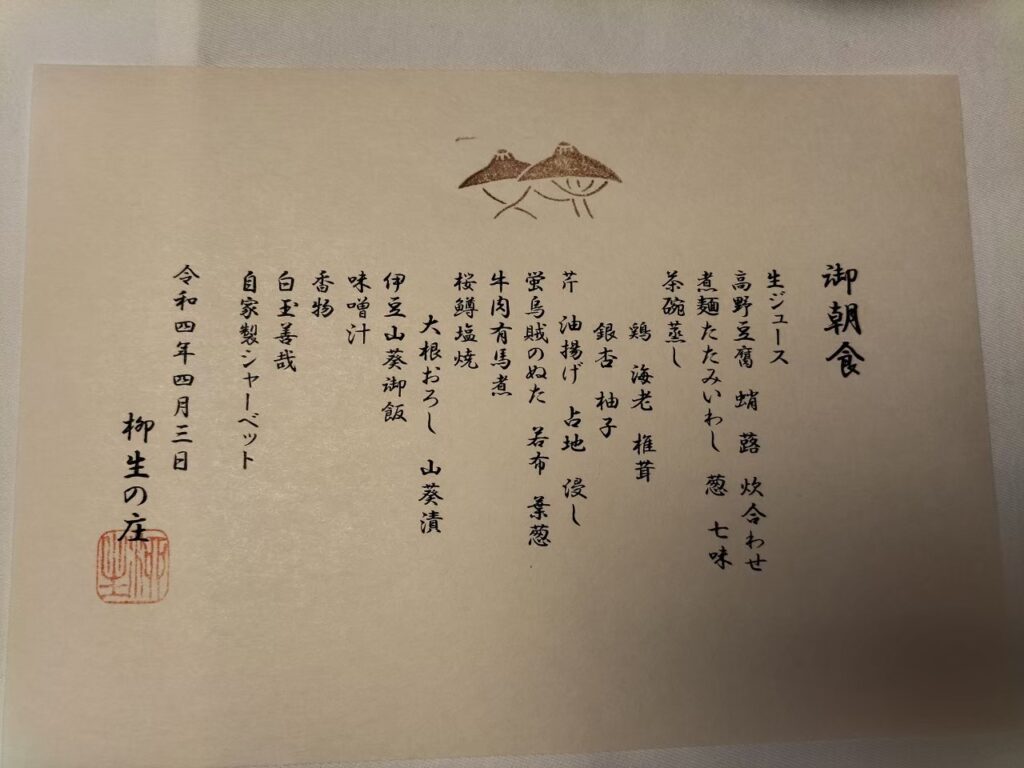 御朝食
生ジュース
高野豆腐 蛸 蕗 炊合わせ
煮麺たたみいわし 葱 七味
茶碗蒸し
鶏 海老 椎茸
銀杏 柚子
芹 油揚げ 占地 浸し
蛍烏賊のぬた 若布 葉葱
牛肉有馬煮
桜鱒塩焼
大根おろし 山葵漬
伊豆山葵御飯
味噌汁
香物
白玉善哉
自家製シャーベット
令和四年四月三日
柳生の庄
柳生